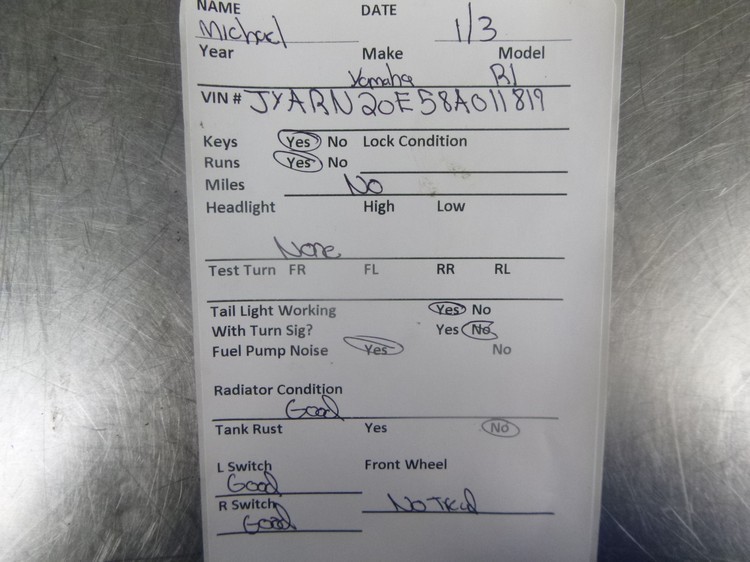 NAME DATE
Michael 1/3
Year Make Model
Yamaha R1
VIN # JYARN20E58A011819
Keys Yes No Lock Condition
Runs Yes No
Miles No
Headlight High Low
None
Test Turn FR FL RR RL
Tail Light Working Yes No
With Turn Sig? Yes No
Fuel Pump Noise Yes No
Radiator Condition
Good
Tank Rust Yes No
L Switch Front Wheel
Good
R Switch No Tred
Good